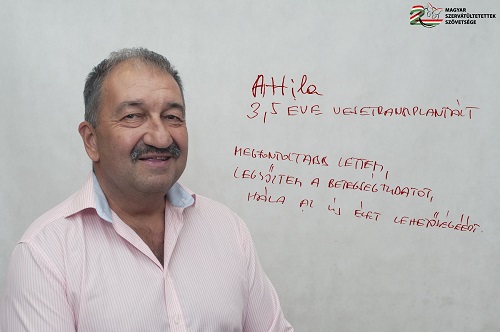 MAGYAR
SZERVÁTÜLTETETTEK
SZÖVETSÉGE
Attila
3,5 ÉVE VESETRANSZPLANTÁLT
MEGFONTOLTABB LETTEM,
LEGYŐZTEM A BETEGSÉGTUDATOT,
HÁLA AZ ÚJ ÉLET LEHETŐSÉGÉÉRT.